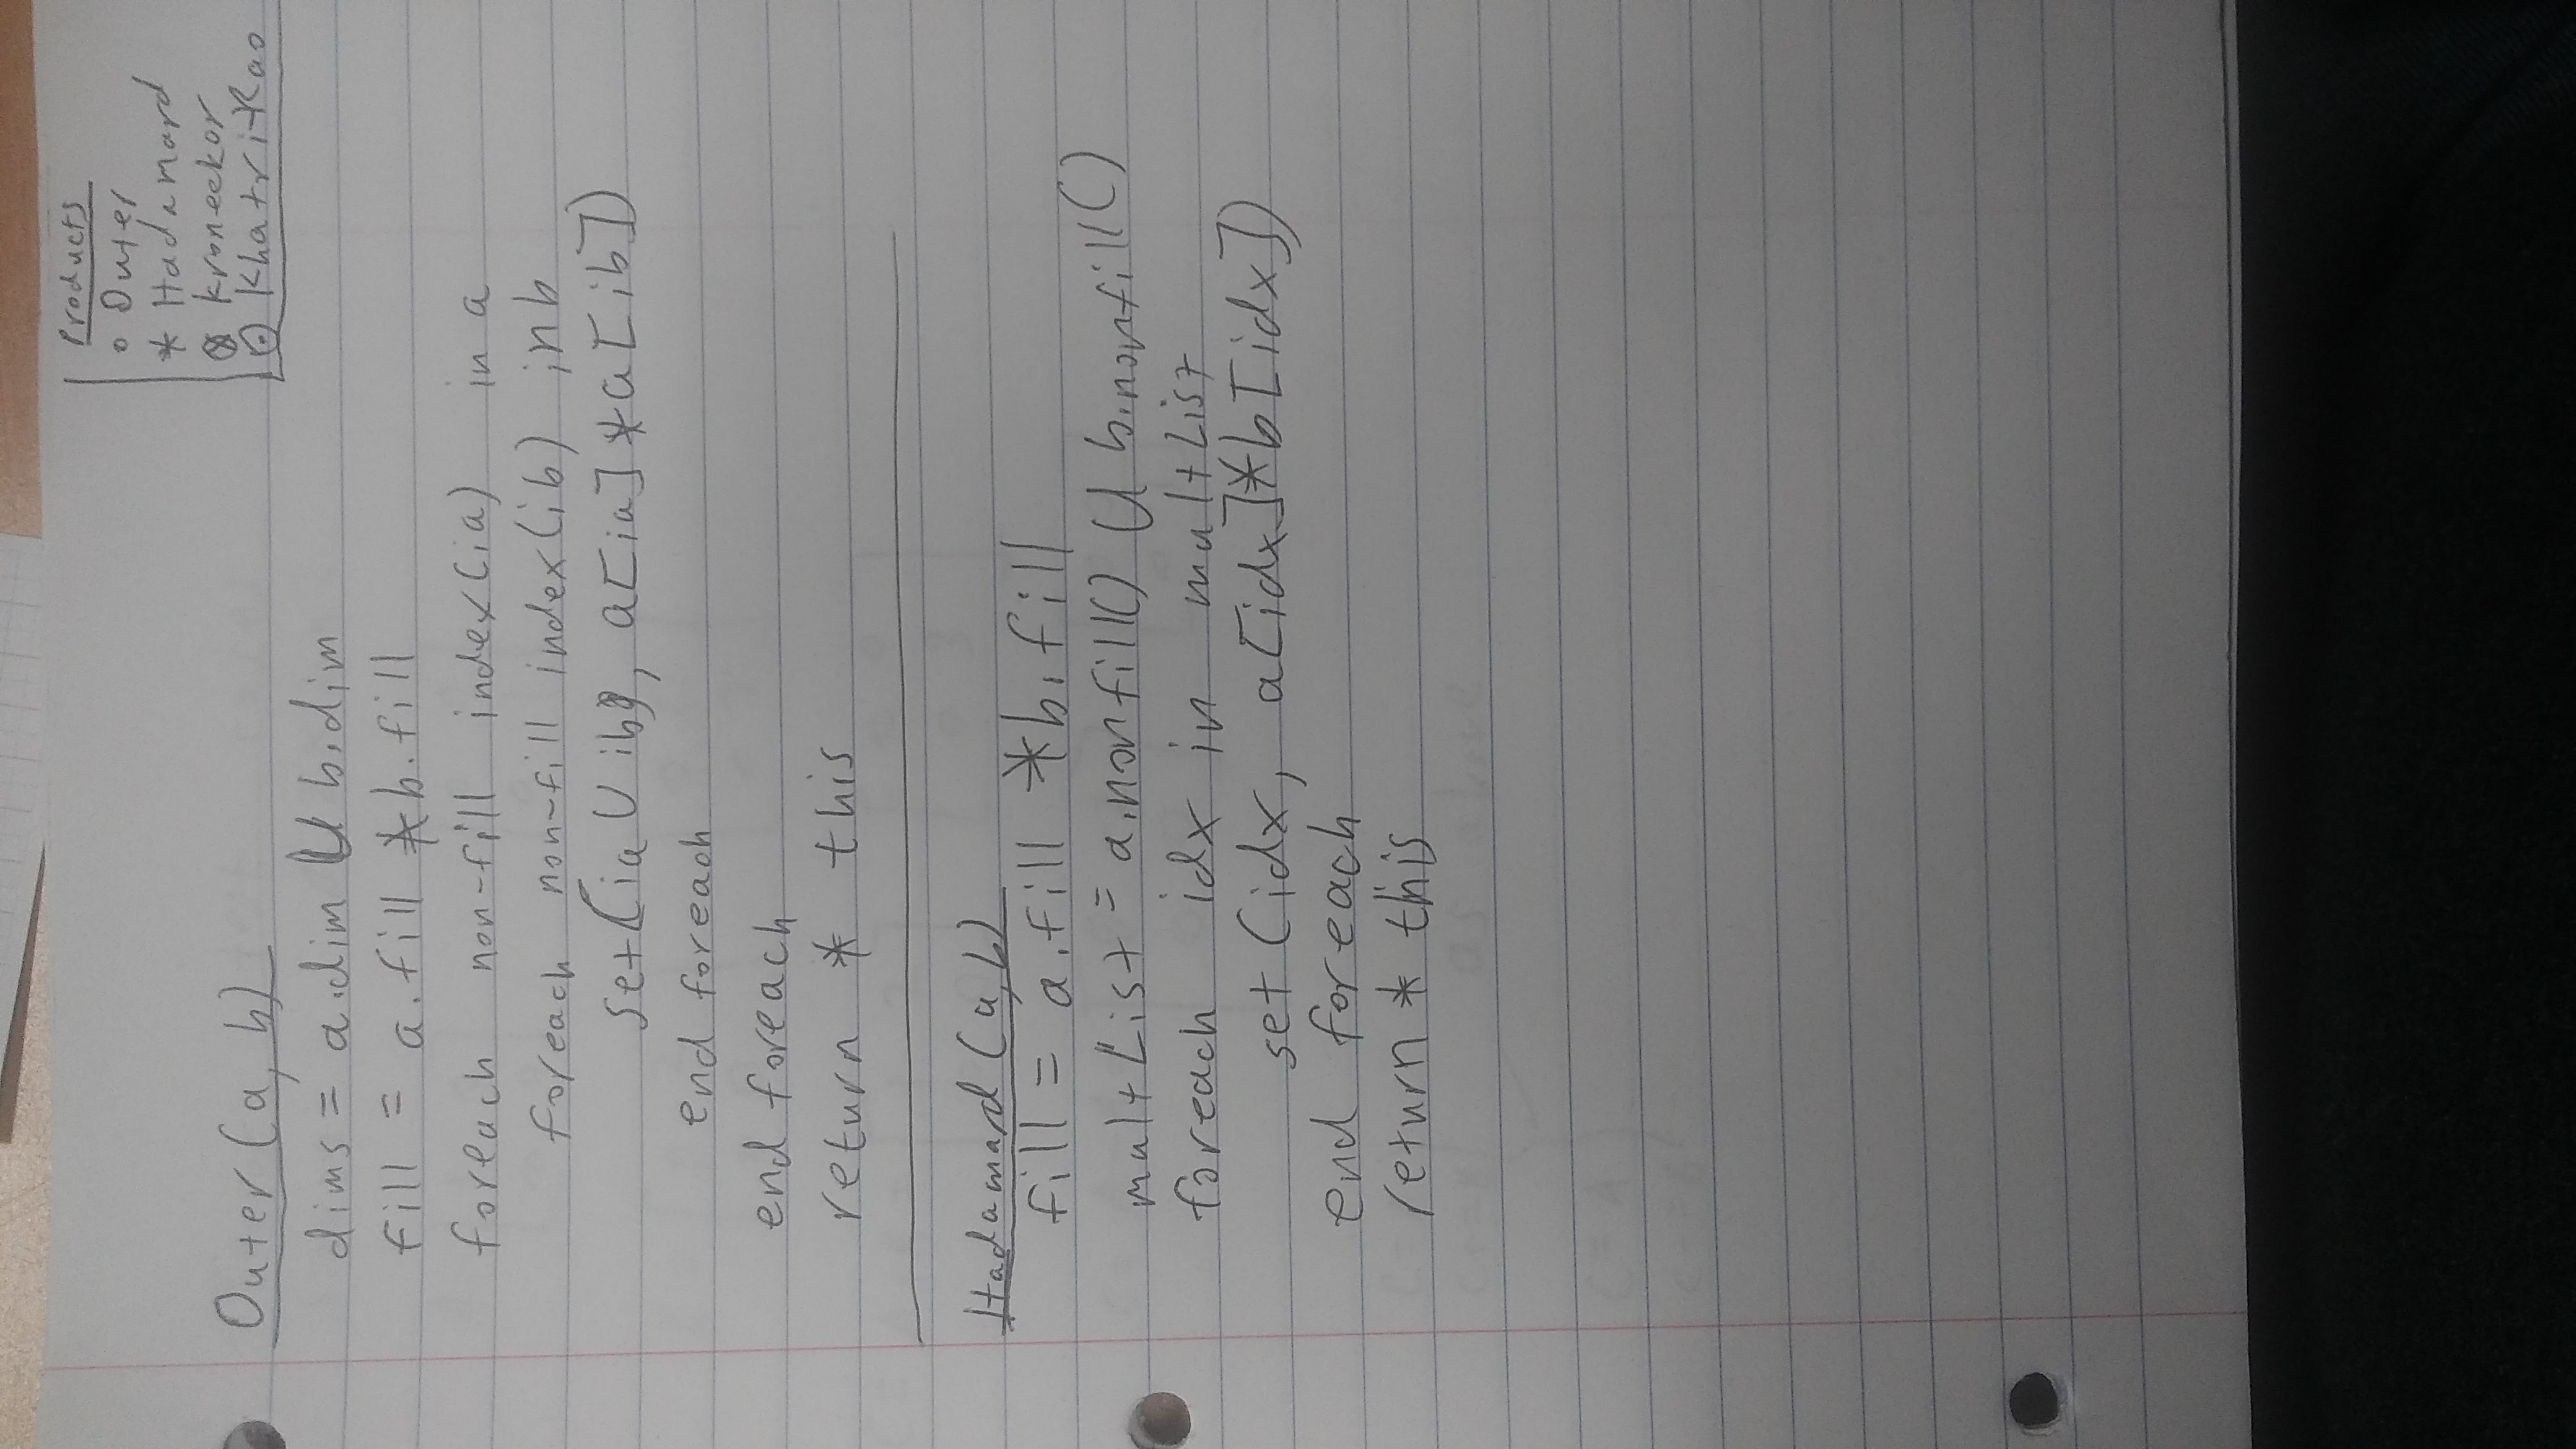 Products
∘ Outer
* Hadamard
⊗ Kroneckor
⊙ Khatri-Rao
Outer (a, b)
dims = a.dim ∪ b.dim
fill = a.fill * b.fill
foreach non-fill index(ia) in a
foreach non-fill index(ib) in b
set(ia ∪ ib, a[ia] * a[ib])
end foreach
end foreach
return * this
Hadamard (a, b)
fill = a.fill * b.fill
multList = a.nonfill() ∪ b.nonfill()
foreach idx in multList
set (idx, a[idx]*b[idx])
end foreach
return * this